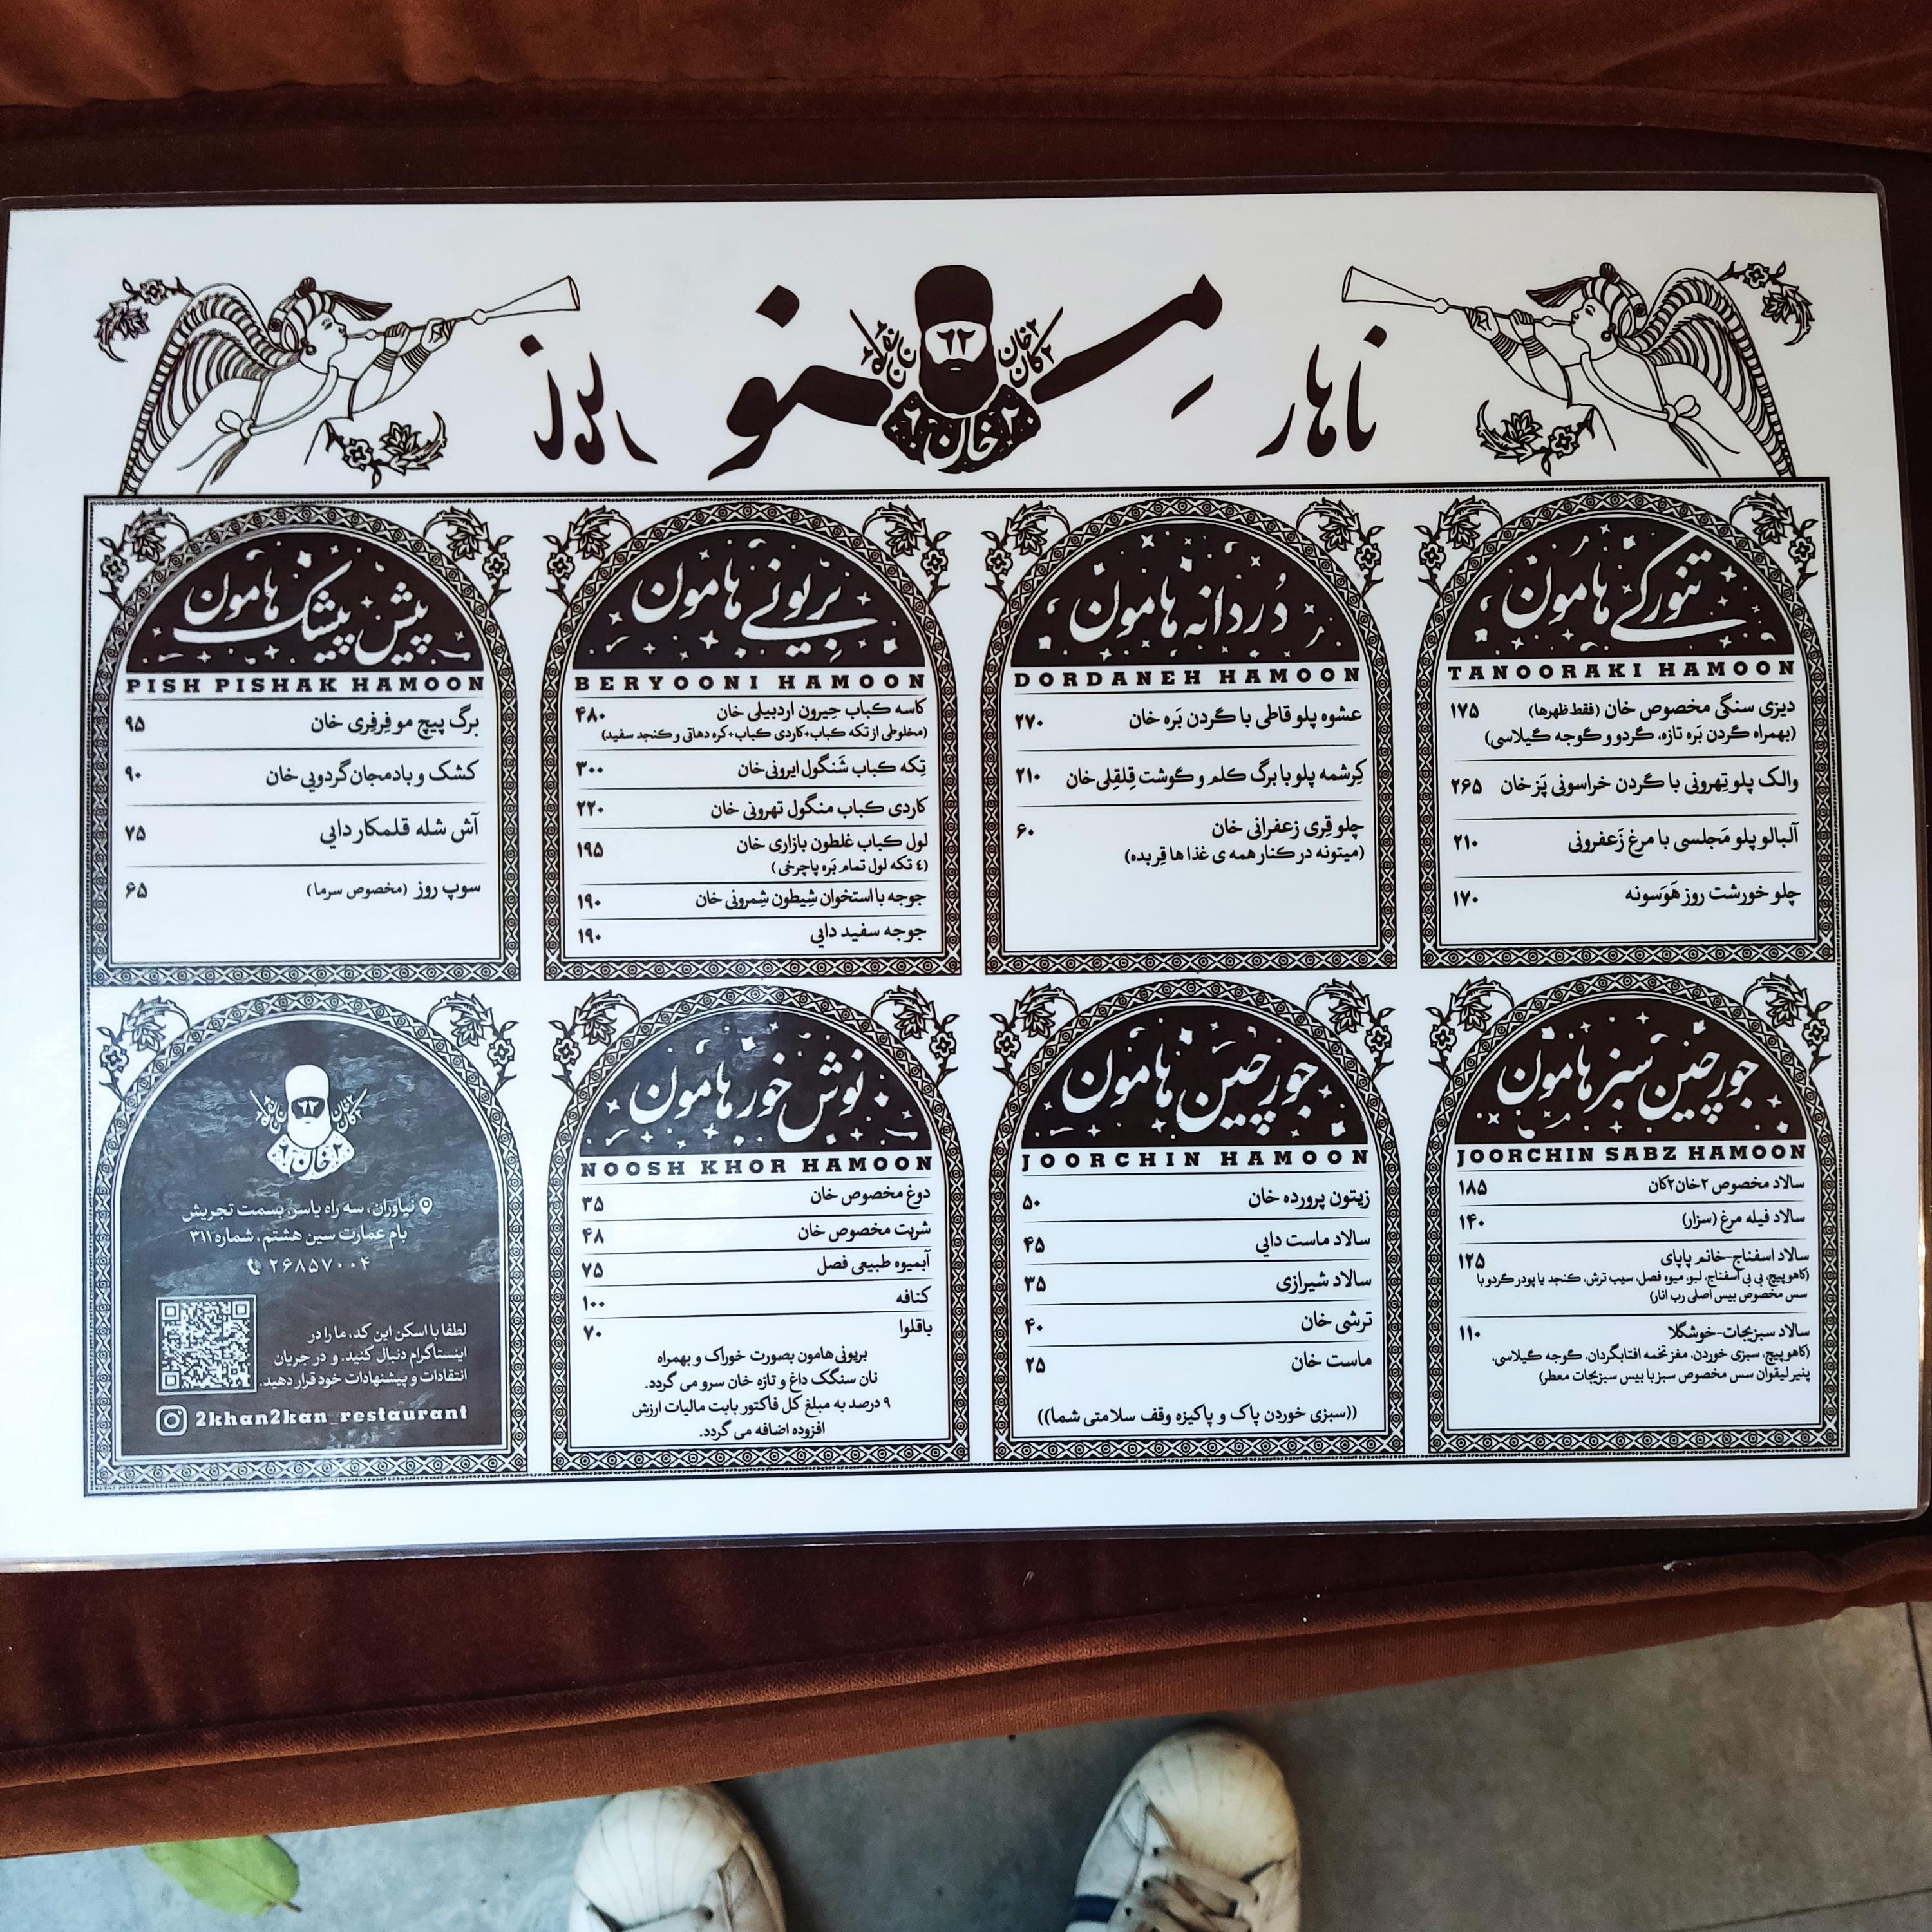 ناهار
مِنو
روز
۲خان
۲کان
۶۲
۲خان۶
تنورکی هامون
TANOORAKI HAMOON
دیزی سنگی مخصوص خان (فقط ظهرها) ۱۷۵
(بهمراه گردن بَره تازه، گردو و گوجه گیلاسی)
والک پلو تِهرونی با گردن خراسونی پَز خان ۲۶۵
آلبالو پلو مَجلسی با مرغ زَعفرونی ۲۱۰
چلو خورشت روز هَوَسونه ۱۷۰
دُردانه هامون
DORDANEH HAMOON
عشوه پلو قاطی با گردن بَره خان ۲۷۰
کِرشمه پلو با برگ کلم و گوشت قِلقِلی خان ۲۱۰
چلو قِری زعفرانی خان ۶۰
(میتونه در کنار همه ی غذا ها قِر بده)
بِریونی هامون
BERYOONI HAMOON
کاسه کباب حِیرون اردبیلی خان ۴۸۰
(مخلوطی از تکه کباب+کاردی کباب+کره دهاتی و کنجد سفید)
تِکه کباب شَنگول ایرونی خان ۳۰۰
کاردی کباب منگول تهرونی خان ۲۲۰
لول کباب غلطون بازاری خان ۱۹۵
(٤ تکه لول تمام بَره پاچرخی)
جوجه با استخوان شِیطون شِمرونی خان ۱۹۰
جوجه سفید دایی ۱۹۰
پیش پیشک هامون
PISH PISHAK HAMOON
برگ پیچ مو فِرفِری خان ۹۵
کشک و بادمجان گردویی خان ۹۰
آش شله قلمکار دایی ۷۵
سوپ روز (مخصوص سرما) ۶۵
جورچین سبز هامون
JOORCHIN SABZ HAMOON
سالاد مخصوص ۲خان۲کان ۱۸۵
سالاد فیله مرغ (سزار) ۱۴۰
سالاد اسفناج-خانم پاپای ۱۲۵
(کاهو پیچ، بی بی اسفناج، لبو، میوه فصل، سیب ترش، کنجد یا پودر گردو با
سس مخصوص بیس اصلی رب انار)
سالاد سبزیجات-خوشگلا ۱۱۰
(کاهو پیچ، سبزی خوردن، مغز تخمه افتابگردان، گوجه گیلاسی،
پنیر لیقوان سس مخصوص سبز با بیس سبزیجات معطر)
جورچین هامون
JOORCHIN HAMOON
زیتون پرورده خان ۵۰
سالاد ماست دایی ۴۵
سالاد شیرازی ۳۵
ترشی خان ۴۰
ماست خان ۲۵
((سبزی خوردن پاک و پاکیزه وقف سلامتی شما))
نوش خور هامون
NOOSH KHOR HAMOON
دوغ مخصوص خان ۳۵
شربت مخصوص خان ۴۸
آبمیوه طبیعی فصل ۷۵
کنافه ۱۰۰
باقلوا ۷۰
بریونی هامون بصورت خوراک و بهمراه
نان سنگک داغ و تازه خان سرو می گردد.
۹ درصد به مبلغ کل فاکتور بابت مالیات ارزش
افزوده اضافه می گردد.
۶۲
۲خان۶
نیاوران، سه راه یاسر، بسمت تجریش
بام عمارت سین هشتم، شماره ۳۱۱
۲۶۸۵۷۰۰۴
لطفا با اسکن این کد، ما را در
اینستاگرام دنبال کنید. و در جریان
انتقادات و پیشنهادات خود قرار دهید.
2khan2kan_restaurant